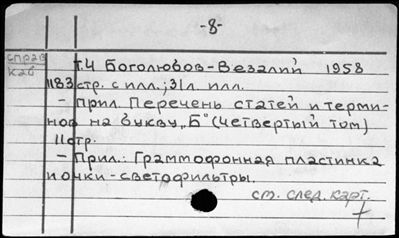 -8-
справ
каб
т.4 Боголюбов-Везалий 1958
1183 стр. с илл.; 31л. илл.
- прил. Перечень статей и терми-
нов на букву „Б" (четвертый том)
11стр.
- Прил.: Граммофонная пластинка
и очки-светофильтры.
см. след. карт.